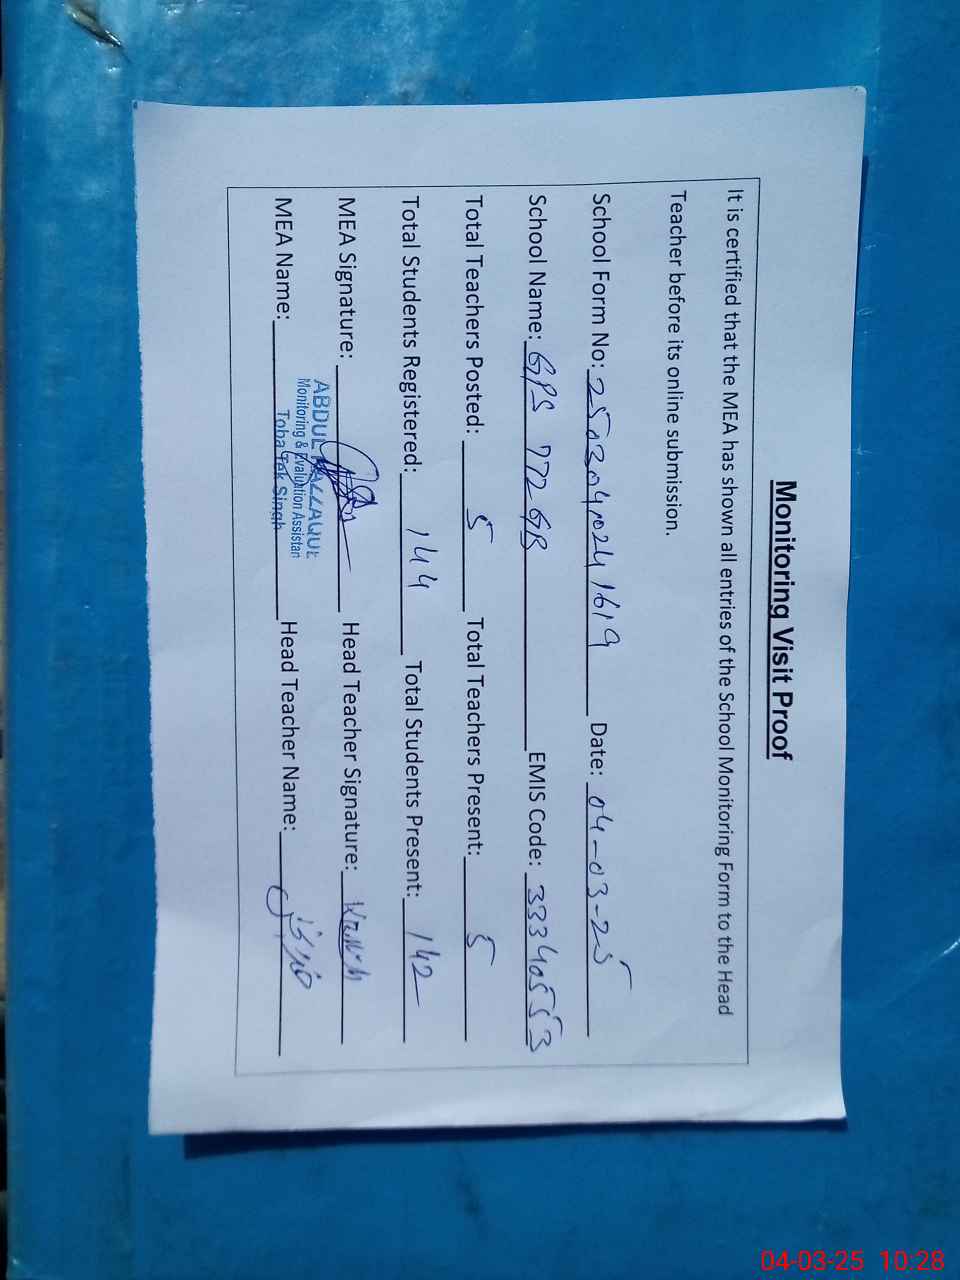 Monitoring Visit Proof
It is certified that the MEA has shown all entries of the School Monitoring Form to the Head
Teacher before its online submission.
School Form No: 2503040241619 Date: 04-03-25
School Name: GPS 772 GB EMIS Code: 33340553
Total Teachers Posted: 5 Total Teachers Present: 5
Total Students Registered: 144 Total Students Present: 142
MEA Signature: Head Teacher Signature:
ABDUL
Monitoring & Evaluation Assistan
Toba Tek Singh
MEA Name: Head Teacher Name:
04-03-25 10:28